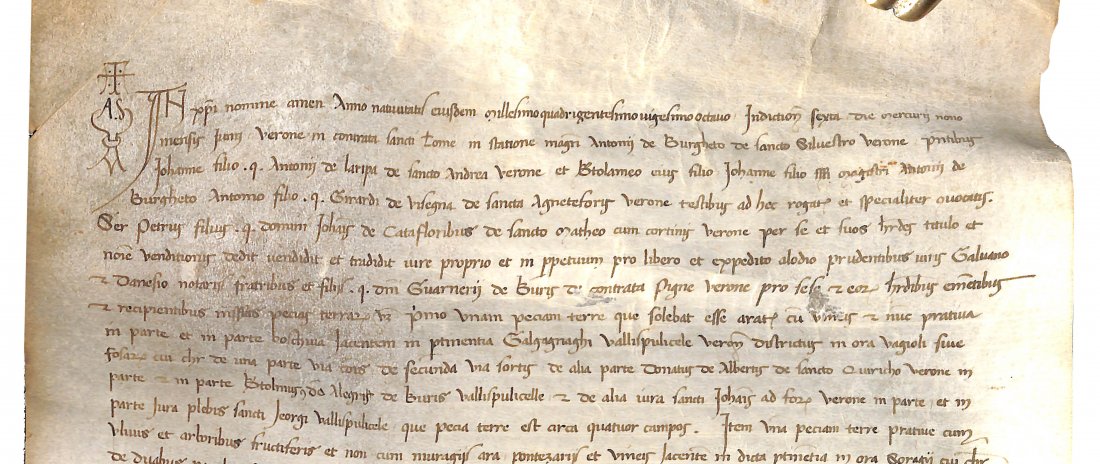 A S
IN xp̄i nomine amen Anno nativitatis eiusdem Millesimo quadrigentesimo vigesimo octavo Indictioñ sexta die mercurij nono
mensis Junij verone in contrata sancti Thome in statione magr̄i Antonij de Burgheto de sancto Silvestro verone pñtibus
Johanne filio .q. Antonij de laripa de sancto Andrea verone et Btolameo eius filio Johanne filio magistri Antonij de
Burgheto Antonio filio .q. Girardi de visegna de sancta Agneteforis verone testibus ad hec rogat et specialiter vocatis.
Ser Petrus filius .q. domini Johañis de Catafloribus de sancto Matheo cum cortinis verone per se et suos hr̄des titulo et
noīe venditionis dedit vendidit et tradidit iure proprio et in ppetuum pro libero et expedito alodio prudentibus viris Galvano
& Danesio notariis fratribus et filijs .q. dnī Guarnerij de Buris de contrata Pigne verone pro sese & eor hr̄dibus emētibus
& recipientibus infrās pecias terrar vz Pmo unam peciam terre que solebat esse arat cū vineis & nūc prativa
in parte et in parte boschiva Jacentem in ptinentia Galgagnaghi vallispulicele veroñ districtus in ora vagioli sive
fosar cui chr de una parte via cois de secunda via sortis de alia parte Donatus de Albertis de sancto Quiricho verone in
parte & in parte Btolmeus Alegris de Buris vallispulicelle & de alia iura sancti Johañis ad for verone in parte et in
parte Jura plebis sancti Jeorgi vallispulicele que pecia terre est circa quatuor campos . Item una peciam terre prative cum
ulivis et arboribus fructiferis et non cum muragijs ara pontezaris et vineis Jacente in dicta ptinetia in ora Soragij cui chr
de duabus